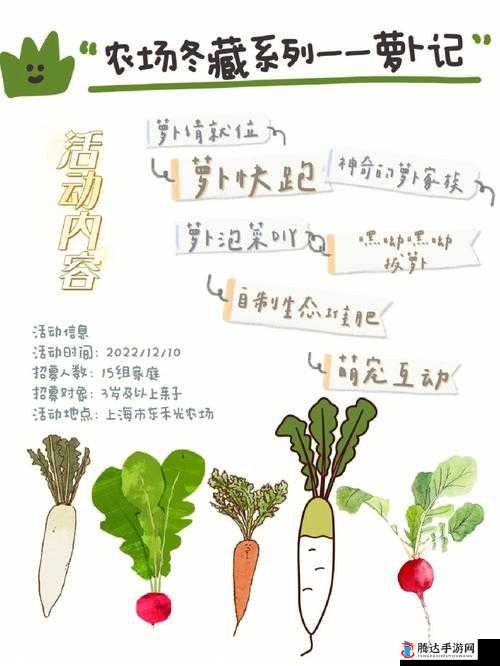 “农场冬藏系列——萝卜记”
活动内容
萝卜请就位
萝卜快跑
神奇的萝卜家族
萝卜泡菜DIY
嘿呦嘿呦
拔萝卜
自制生态堆肥
萌宠互动
活动信息
活动时间：2022/12/10
招募人数：15组家庭
招募对象：3岁及以上亲子
活动地点：上海市东禾光农场
腾达手游网